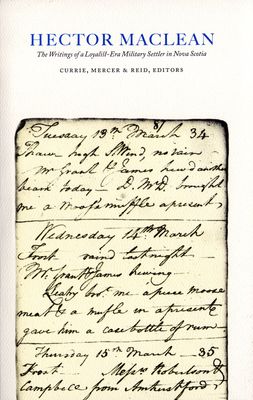 HECTOR MACLEAN
The Writings of a Loyalist-Era Military Settler in Nova Scotia
CURRIE, MERCER & REID, EDITORS
Tuesday 13th March 34
Thaw high S. Wind, no rain
Mr Grant & James hew'd another
beam today D. McD. brought
me a Moose muffle a present
Wednesday 14th March
Frost rain last night
Mr. Grant & James hewing
Leahy bro.t me a piece moose
meat & a mufle in a present &
gave him a case bottle of rum
Thursday 15th March 35
Frost Messrs Robertson &
Campbell from Amherstford